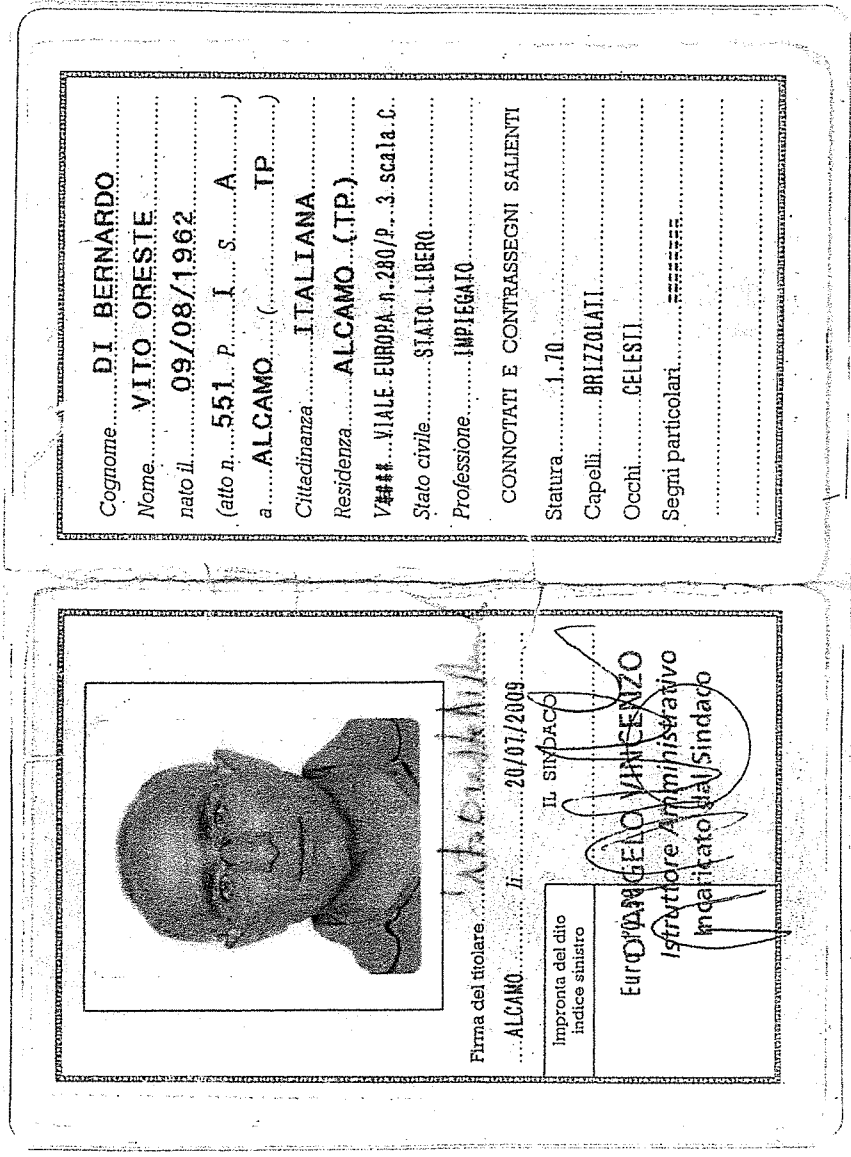 Cognome DI BERNARDO
Nome VITO ORESTE
nato il 09/08/1962
(atto n. 551 P I S A)
a ALCAMO ( TP )
Cittadinanza ITALIANA
Residenza ALCAMO (TP)
V#### VIALE EUROPA n.280/P. 3 scala C
Stato civile STATO LIBERO
Professione IMPIEGATO
CONNOTATI E CONTRASSEGNI SALIENTI
Statura 1.70
Capelli BRIZZOLATI
Occhi CELESTI
Segni particolari ========
Firma del titolare
ALCAMO li 20/07/2009
IL SINDACO
Impronta del dito
indice sinistro
Euro
D'ANGELO VINCENZO
Istruttore Amministrativo
Incaricato dal Sindaco